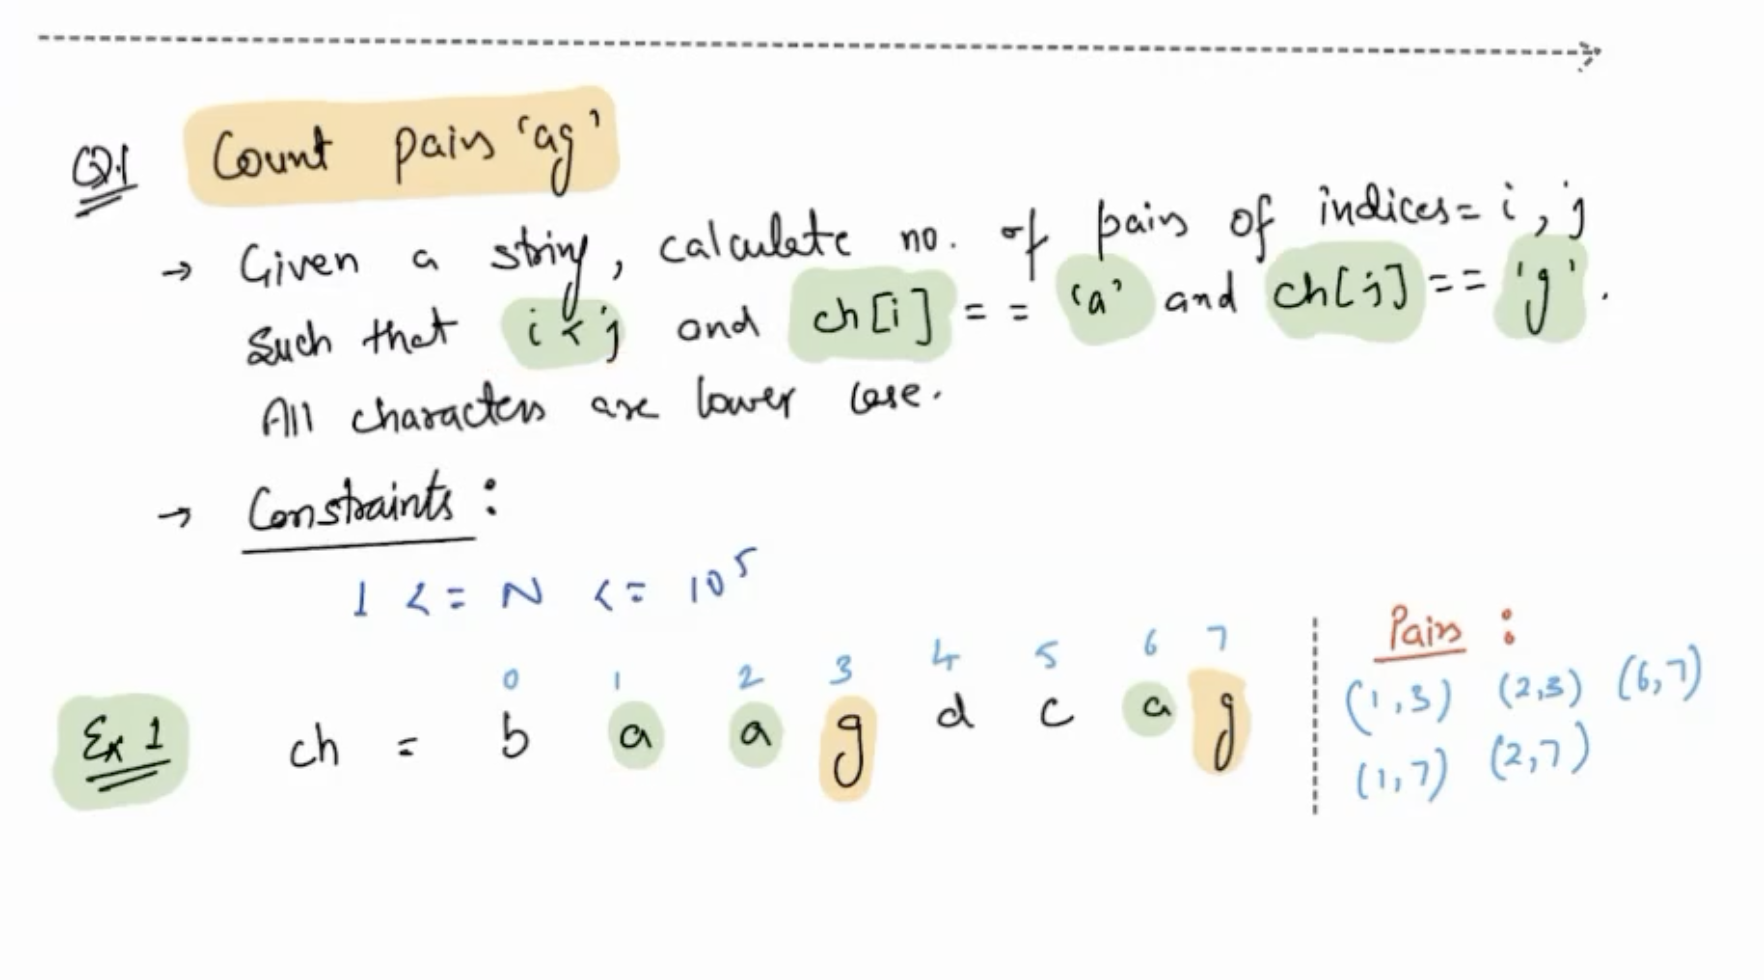 Q.1 Count pairs 'ag'
→ Given a string, calculate no. of pairs of indices= i, j
Such that i < j and ch[i] == 'a' and ch[j] == 'g'.
All characters are lower case.
→ Constraints :
1 <= N <= 10⁵
0 1 2 3 4 5 6 7
Ex 1 ch = b a a g d c a g
Pairs :
(1,3) (2,3) (6,7)
(1,7) (2,7)